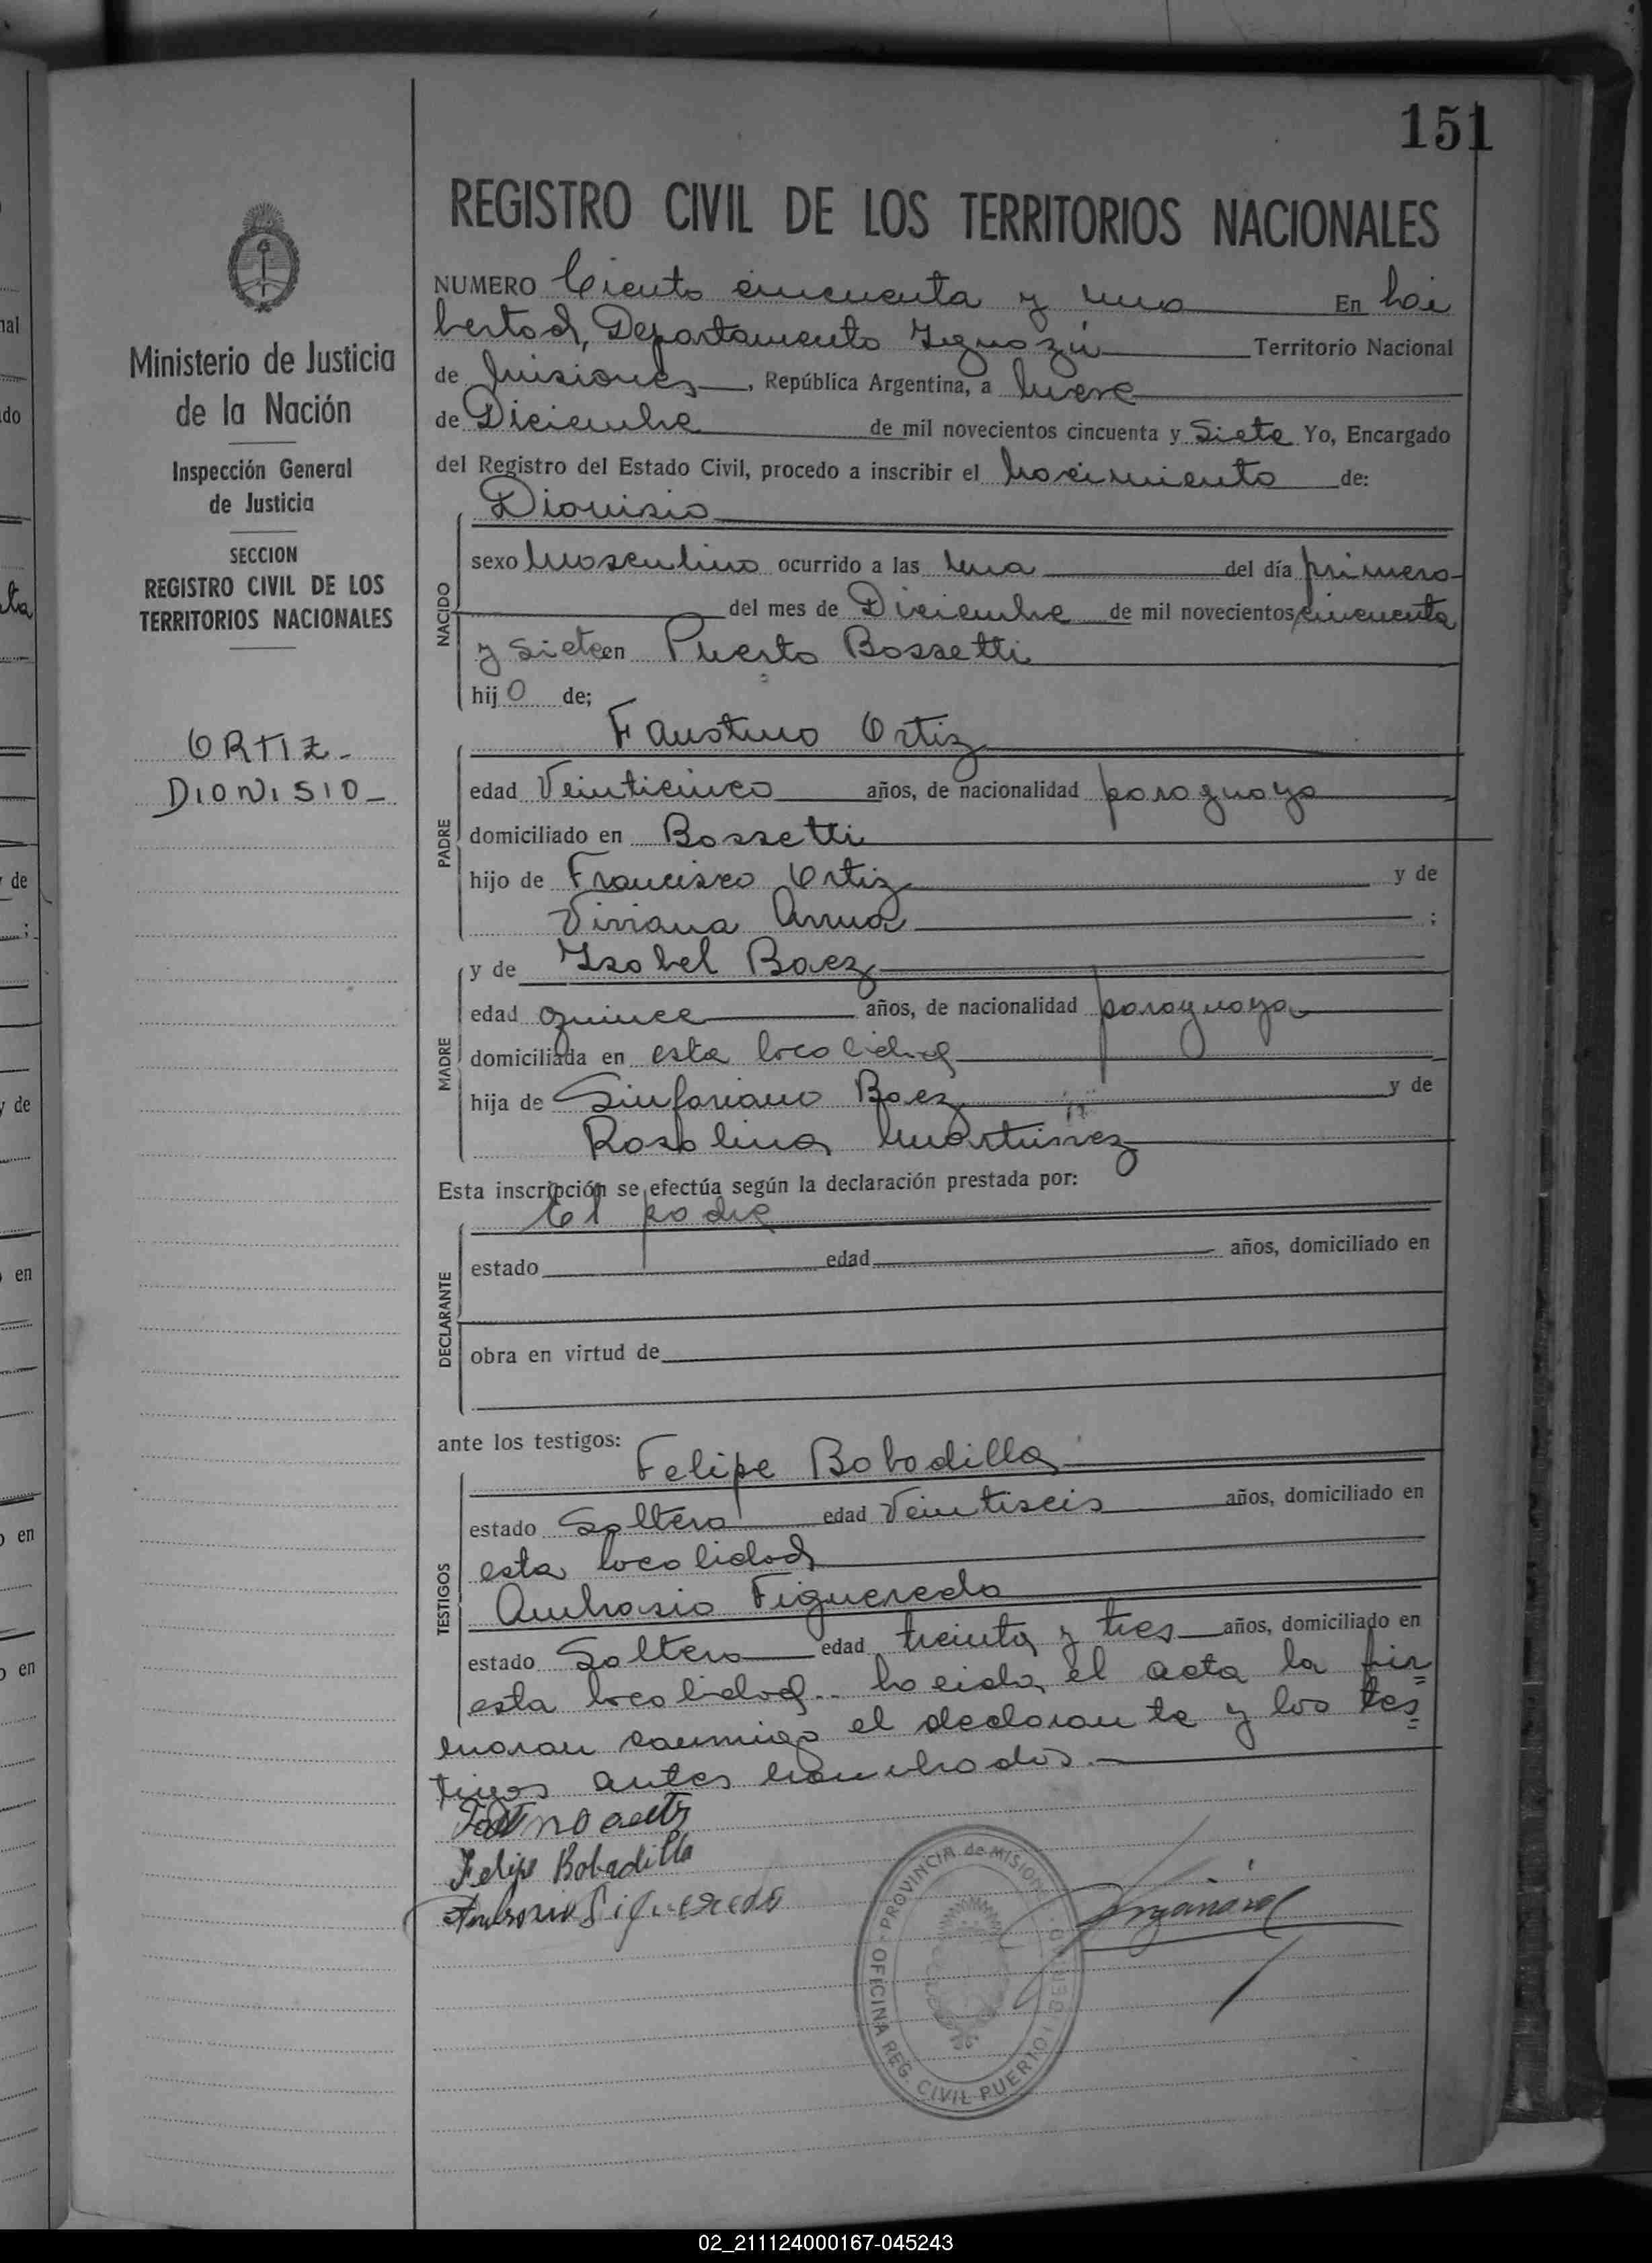 151
REGISTRO CIVIL DE LOS TERRITORIOS NACIONALES
Ministerio de Justicia
de la Nación
Inspección General
de Justicia
SECCION
REGISTRO CIVIL DE LOS
TERRITORIOS NACIONALES
ORTIZ-
DIONISIO-
NUMERO Ciento cincuenta y uno En Lai
bertad, Departamento Iguazú Territorio Nacional
de Misiones, República Argentina, a Nueve
de Diciembre de mil novecientos cincuenta y Siete Yo, Encargado
del Registro del Estado Civil, procedo a inscribir el Nacimiento de:
Dionisio
NACIDO
sexo Masculino ocurrido a las Una del día primero
del mes de Diciembre de mil novecientos cincuenta
y Siete en Puerto Bossetti
hijo de;
Faustino Ortiz
PADRE
edad Veinticinco años, de nacionalidad paraguaya
domiciliado en Bossetti
hijo de Francisco Ortiz y de
Viviana Arrua ;
y de Isabel Baez
MADRE
edad quince años, de nacionalidad paraguaya
domiciliada en esta localidad
hija de Sinforiano Baez y de
Rosalina Martinez
Esta inscripción se efectúa según la declaración prestada por:
El padre
DECLARANTE
estado edad años, domiciliado en
obra en virtud de
ante los testigos:
Felipe Bobadilla
TESTIGOS
estado Soltero edad Veintiseis años, domiciliado en
esta localidad
Ambrosio Figueredo
estado Soltero edad treinta y tres años, domiciliado en
esta localidad.. Leida el acta la fir=
maron conmigo el declarante y los tes=
tigos antes nombrados.-
Felipe Bobadilla
Ambrosio Figueredo
OFICINA REG. CIVIL PUERTO - PROVINCIA de MISIONES
02_211124000167-045243